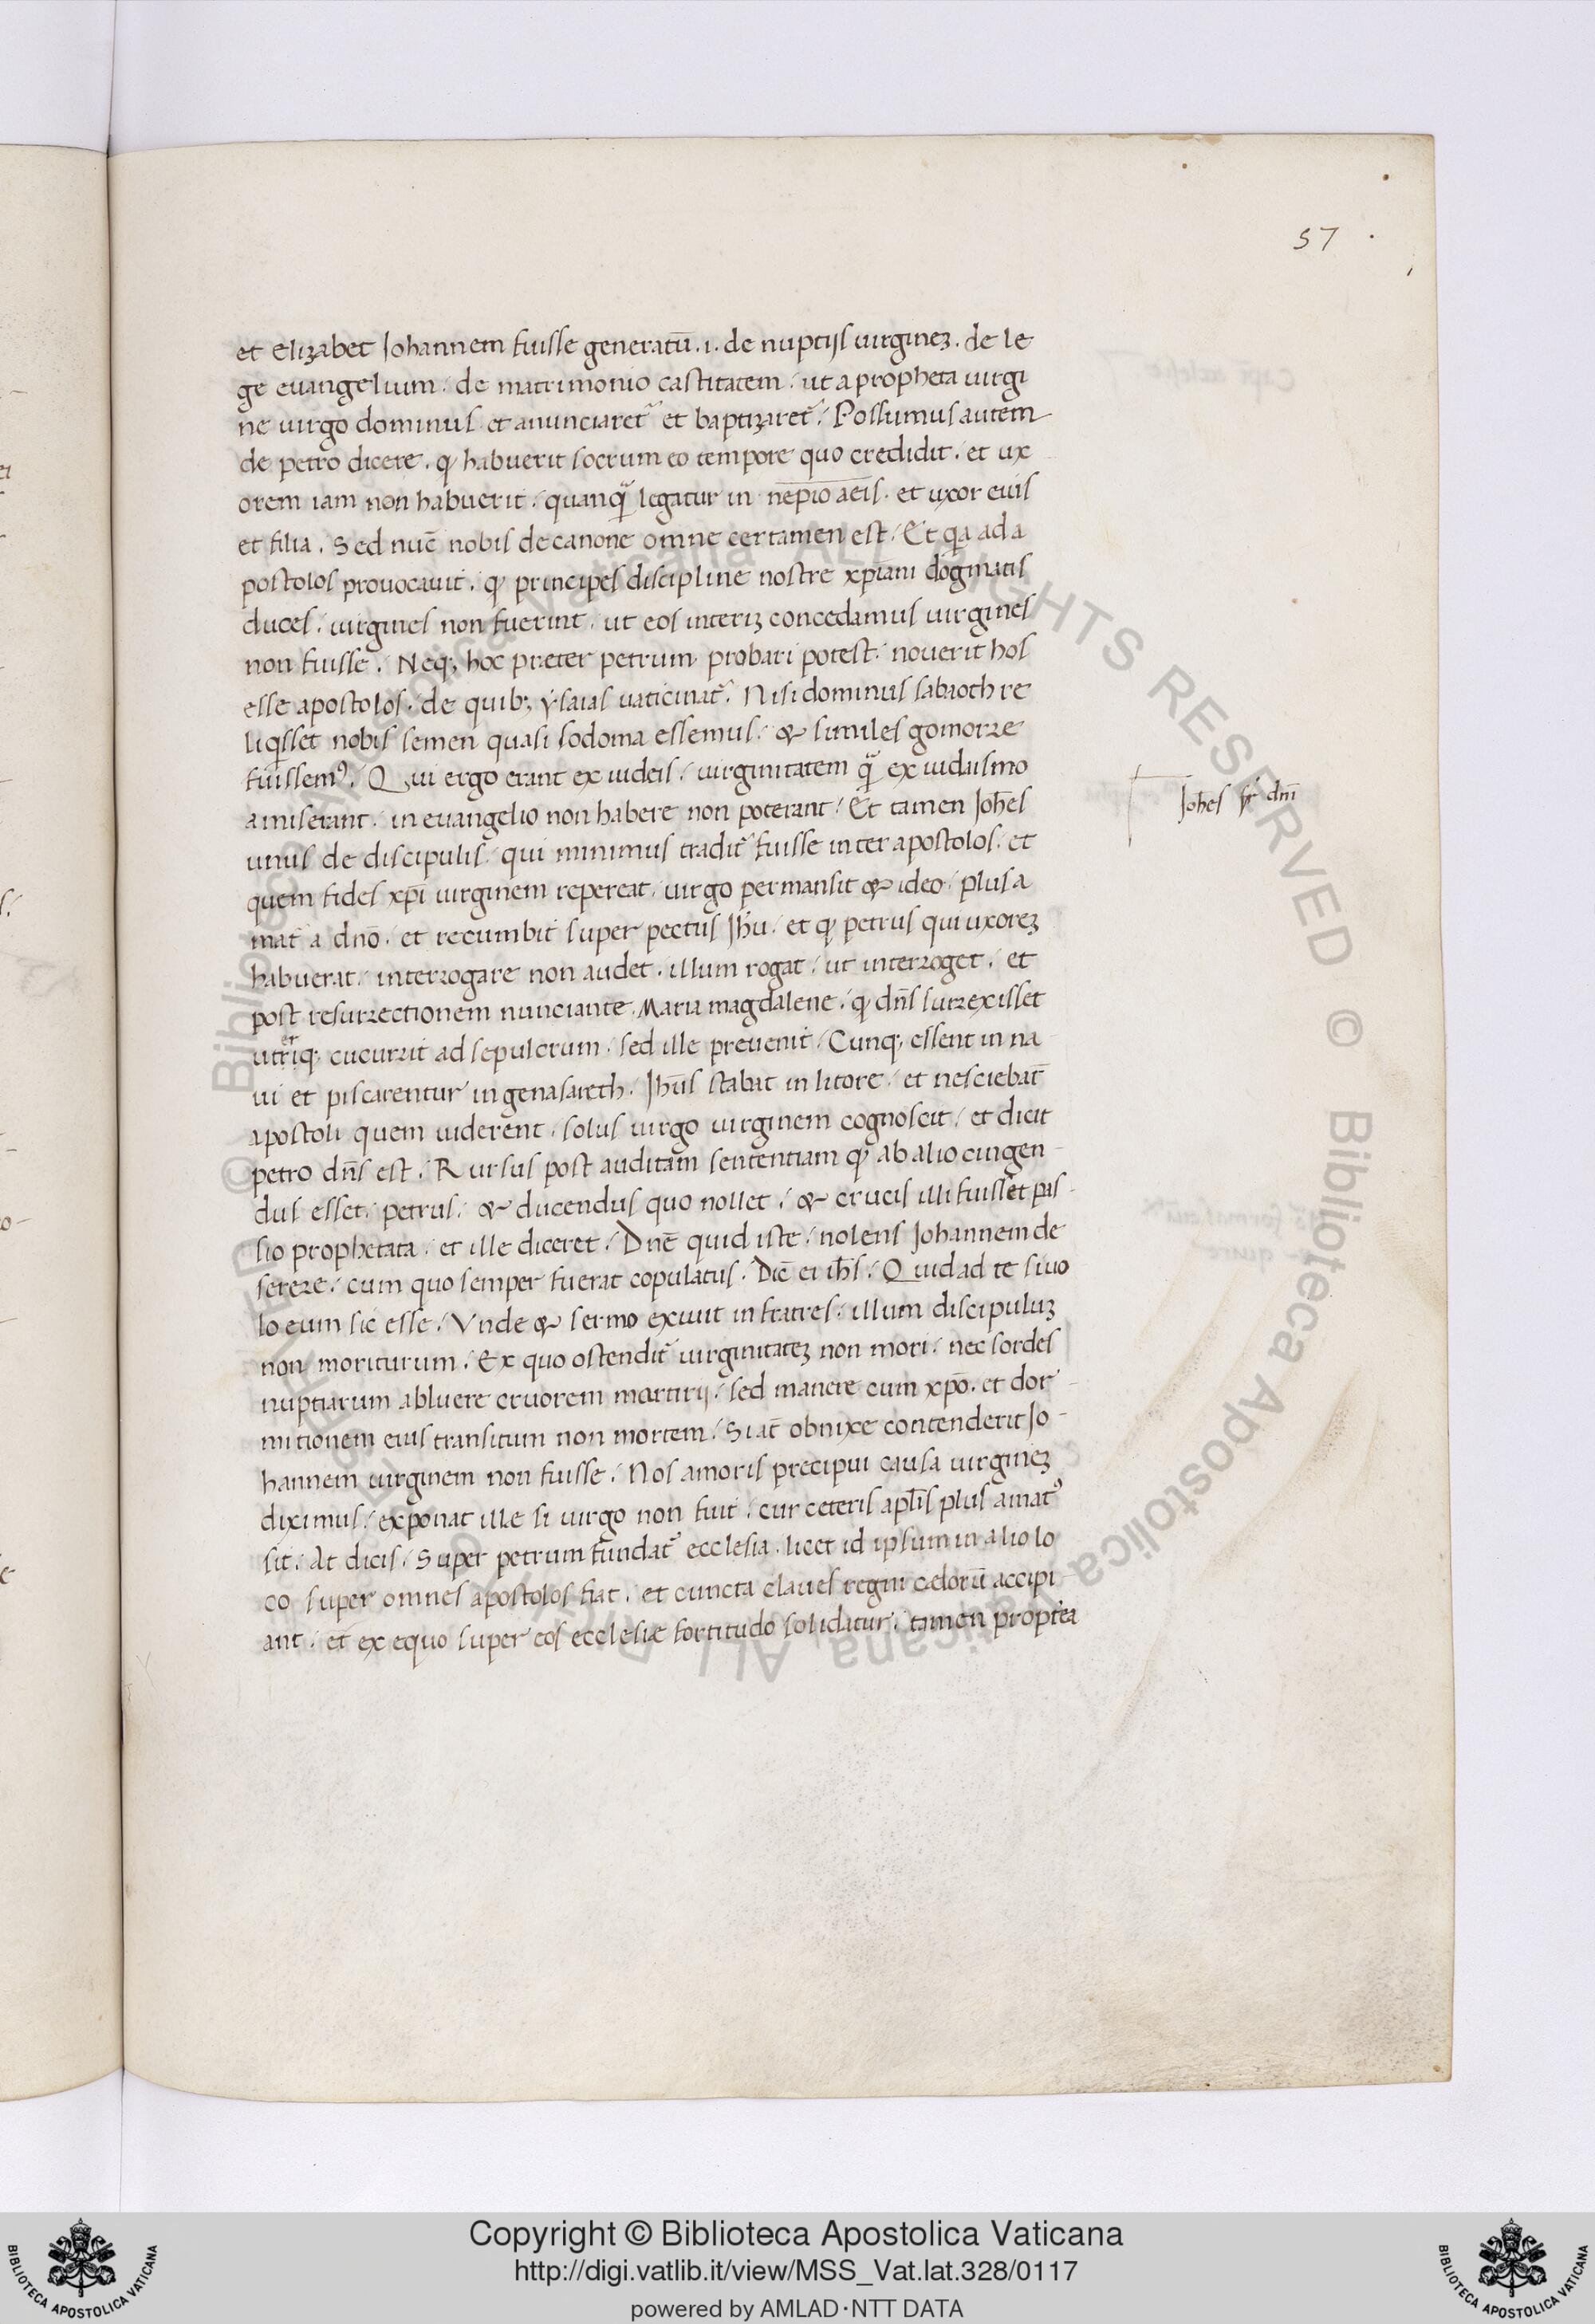 57
et elizabet Johannem fuisse generatū .i. de nuptijs uirginez. de le
ge euangelium. de matrimonio castitatem. ut a propheta uirgi
ne uirgo dominus et anunciaret᷑ et baptizaret᷑. Possumus autem
de petro dicere. ꝙ habuerit socrum eo tempore quo credidit. et ux
orem iam non habuerit. quanꝙ̃ legatur in et uxor eius
et filia. Sed nūc nobis de canone omne certamen est. Et qa ad a
postolos prouocauit. ꝙ principes discipline nostre xp̄iani dogmatis
duces. uirgines non fuerint. ut eos interiz concedamus uirgines
non fuisse. Neq; hoc preter petrum probari potest. nouerit hos
esse apostolos. de quib; ysaias uaticinat᷑. Nisi dominus sabaoth re
liqisset nobis semen quasi sodoma essemus. & similes gomorre
fuissem⁹. Qui ergo erant ex iudeis. uirginitatem q̃ ex iudaismo
amiserant. in euangelio non habere non poterant. Et tamen Joh̄es
unus de discipulis. qui minimus tradit᷑ fuisse inter apostolos. et
quem fides xp̄i uirginem repererat. uirgo permansit & ideo plus a
mat᷑ a dn̄o. et recumbit super pectus Jh̄u. et ꝙ petrus qui uxorez
habuerat. interrogare non audet. illum rogat. ut interroget. et
post resurrectionem nunciante Maria magdalene. ꝙ dn̄s surrexisset
uterq; cucurrit ad sepulcrum. sed ille preuenit. Cunq; essent in na
ui et piscarentur in genasareth. Jh̄us stabat in litore. et nesciebāt
apostoli quem uiderent. solus uirgo uirginem cognoscit. et dicit
petro dn̄s est. Rursus post auditam sententiam ꝙ ab alio cingen-
dus esset petrus. & ducendus quo nollet. & crucis illi fuisset pas-
sio prophetata. et ille diceret. Dn̄e quid iste. nolens Johannem de
serere. cum quo semper fuerat copulatus. Dic̄ ei ih̄s. Quid ad te si uo
lo eum sic esse. Vnde & sermo exiuit in fratres. illum discipuluz
non moriturum. Ex quo ostendit᷑ uirginitatez non mori. nec sordes
nuptiarum abluere cruorem martirij. sed manere cum xp̄o. et dor-
mitionem eius transitum non mortem. Si at̄ obnixe contenderit Jo-
hannem uirginem non fuisse. Nos amoris precipui causa uirginez
diximus. exponat ille si uirgo non fuit. cur ceteris apl̄is plus amat⁹
sit. At dicis. Super petrum fundat᷑ ecclesia. licet id ipsum in alio lo
co super omnes apostolos fiat. et cuncta claues regni cælorū accipi-
ant. et ex equo super eos ecclesiæ fortitudo solidatur. tamen propterea
Joh̄es
Copyright © Biblioteca Apostolica Vaticana
http://digi.vatlib.it/view/MSS_Vat.lat.328/0117
powered by AMLAD·NTT DATA